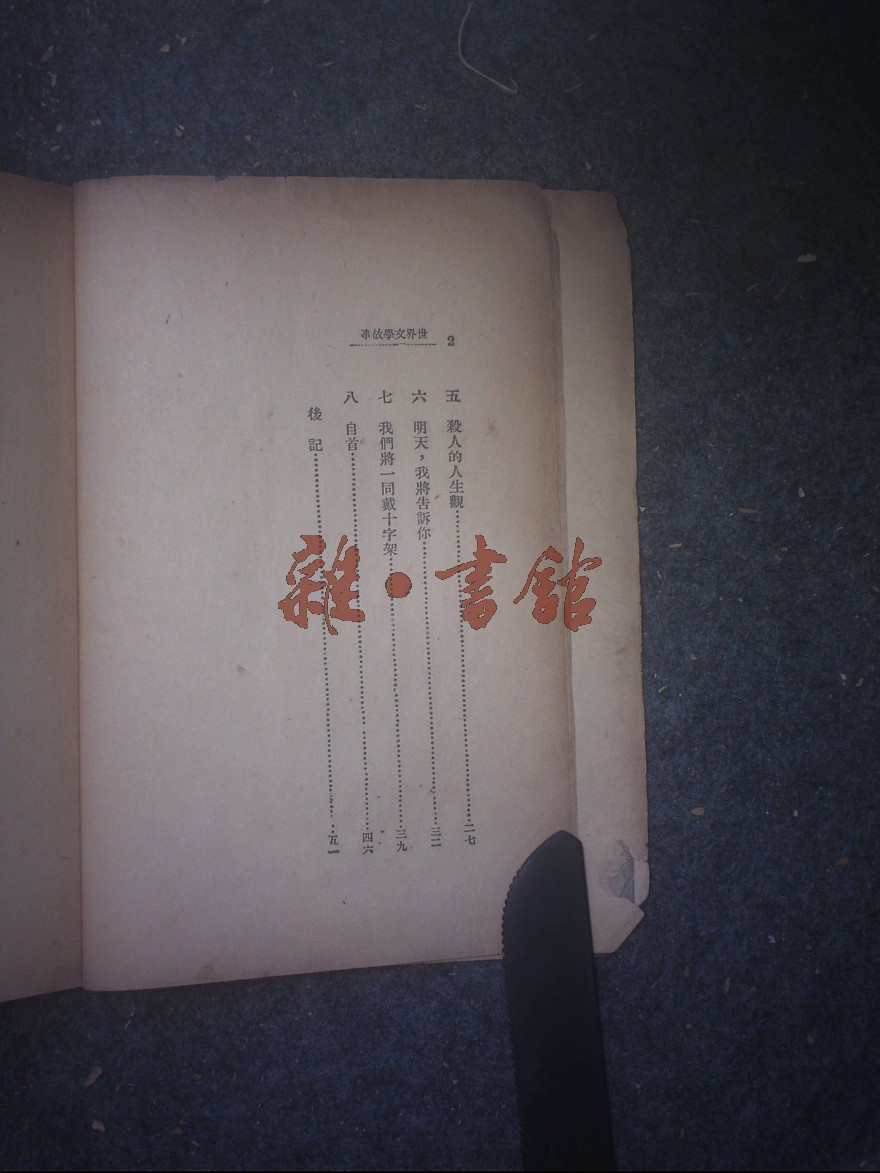 2
世界文學故事
五 殺人的人生觀……二七
六 明天，我將告訴你……三二
七 我們將一同戴十字架……三九
八 自首……四六
後記……五一
雜·書館